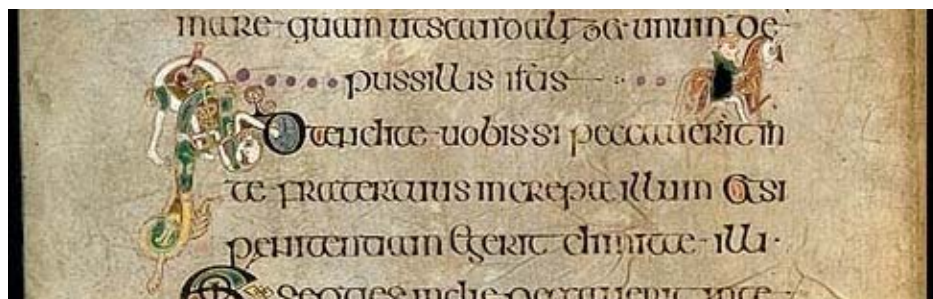 mare quam utscandalizet unum de
pussillis istis
Attendite uobis si peccauerit in
te frater tuus increpa illum & si
penitentiam egerit dimitte illi
& si septies in die peccauerit in te